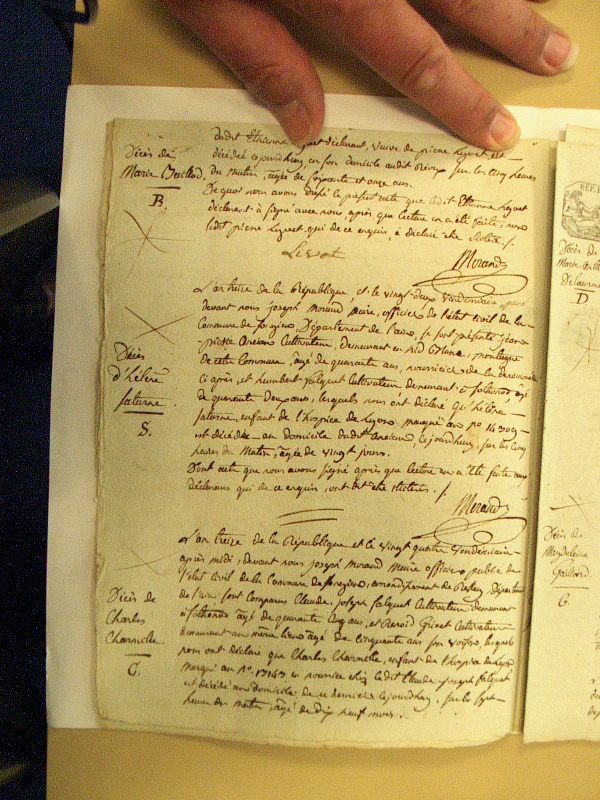 dudit Etienne Leyvet déclarant, veuve de pierre Leyvet est
décédée cejourdhuy, en son domicile audit sur les cinq heures
Décès de
Marie
B.
du matin, agée de soixante et onze ans.
De quoi nous avons dressé le présent acte que ledit Etienne Leyvet
déclarant à signé avec nous, après que lecture en a été faite, non
ledit pierre Leyvet, qui de ce enquis, à déclaré etre illitéré /.
Morand
L'an treize de la République, et le vingt deux Vendémiaire, par
devant nous Joseph Morand Maire, officier de l'état civil de la
Commune de Département de l'ain, se sont présentés Jean
pierre Cultivateur, demeurant en montagne
de cette Commune, agé de quarante ans, nourricier de la dénommée
Décès
d'hélène
Saturne
S.
Ci après, et humbert falquet Cultivateur demeurant à Sothonod agé
de quarante deux ans, lesquels nous ont déclaré qu'hélène
Saturne, enfant de l'hospice de Lyon marqué au no. 14309
est décédée au domicile dudit cejourdhuy, sur les cinq
heures du Matin, agée de vingt jours.
Dont acte que nous avons signé après que lecture en a été faite aux
déclarans qui de ce enquis, ont dit etre illitérés. /.
Morand
L'an treize de la République et le vingt quatre Vendémiaire
après midi, devant nous Joseph Morand Maire officier public de
l'état civil de la Commune de arrondissement de Belley, Département
de l'ain, sont comparus Claude Joseph falquet Cultivateur demeurant
Décès de
Charles
Charmille
C.
à Sothonod agé de quarante cinq ans, et Benoit Cultivateur
demeurant au même lieu agé de cinquante ans son voisin, lesquels
nous ont déclaré que Charles Charmille, enfant de l'hospice de Lyon
Marqué au no. 13143 en nourrice chez ledit Claude Joseph falquet
est décédé au domicile de ce dernier cejourdhuy, sur les sept
heures du matin, agé de dix neuf mois.
Décès de
Marie
D.
Décès de
Magdeleine
G.